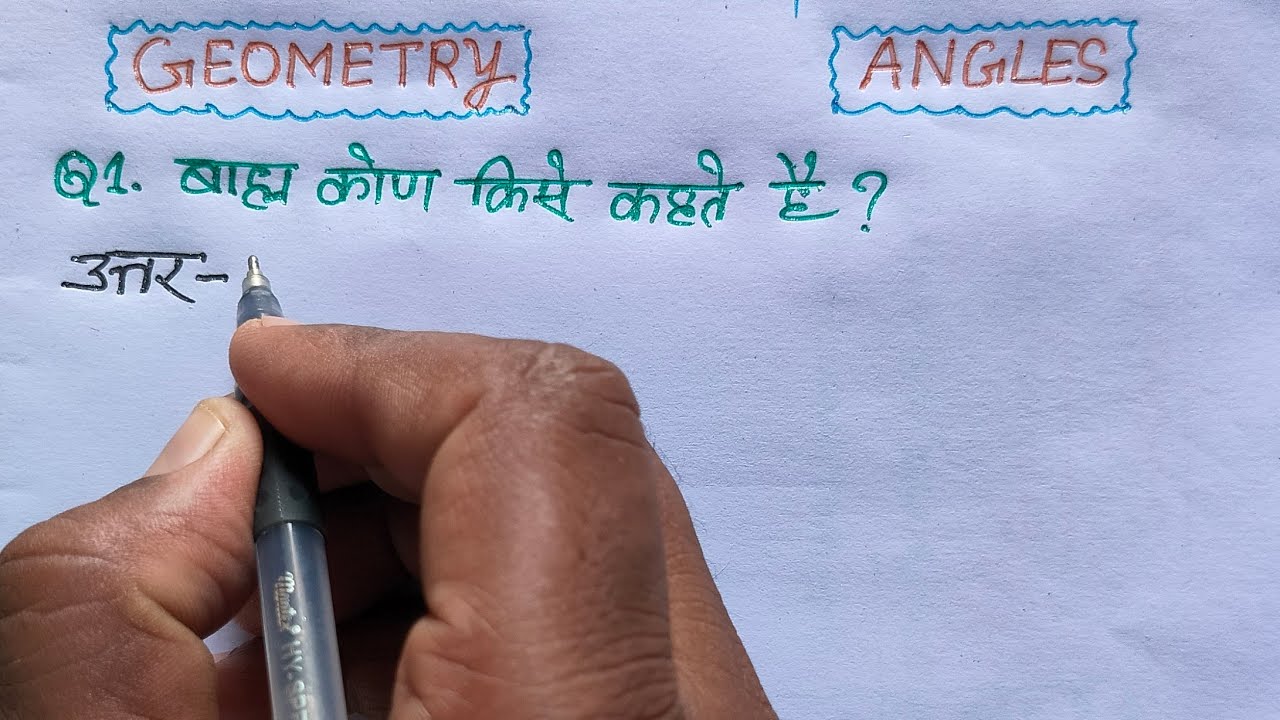 GEOMETRY ANGLES
Q1. बाह्य कोण किसे कहते है ?
उत्तर-